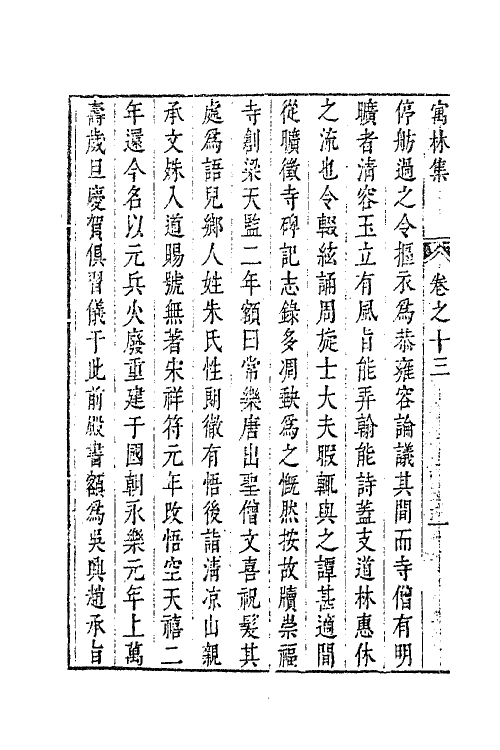 寓林集 卷之十三
停舫過之令摳衣為恭雍容論議其間而寺僧有明
曠者清容玉立有風旨能弄翰能詩蓋支道林惠休
之流也令輟絃誦周旋士大夫暇輒與之譚甚適間
從曠徵寺碑記志錄多凋缺為之慨然按故牘崇福
寺創梁天監二年額曰常樂唐出聖僧文喜祝髮其
處為語兒鄉人姓朱氏性則徹有悟後詣清凉山親
承文殊入道賜號無著宋祥符元年改悟空天禧二
年還今名以元兵火廢重建于國朝永樂元年上萬
壽歲旦慶賀俱習儀于此前殿書額為吳興趙承旨